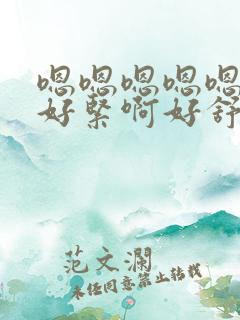 嗯嗯嗯嗯嗯
好紧啊好舒
范文澜
未经同意禁止转载